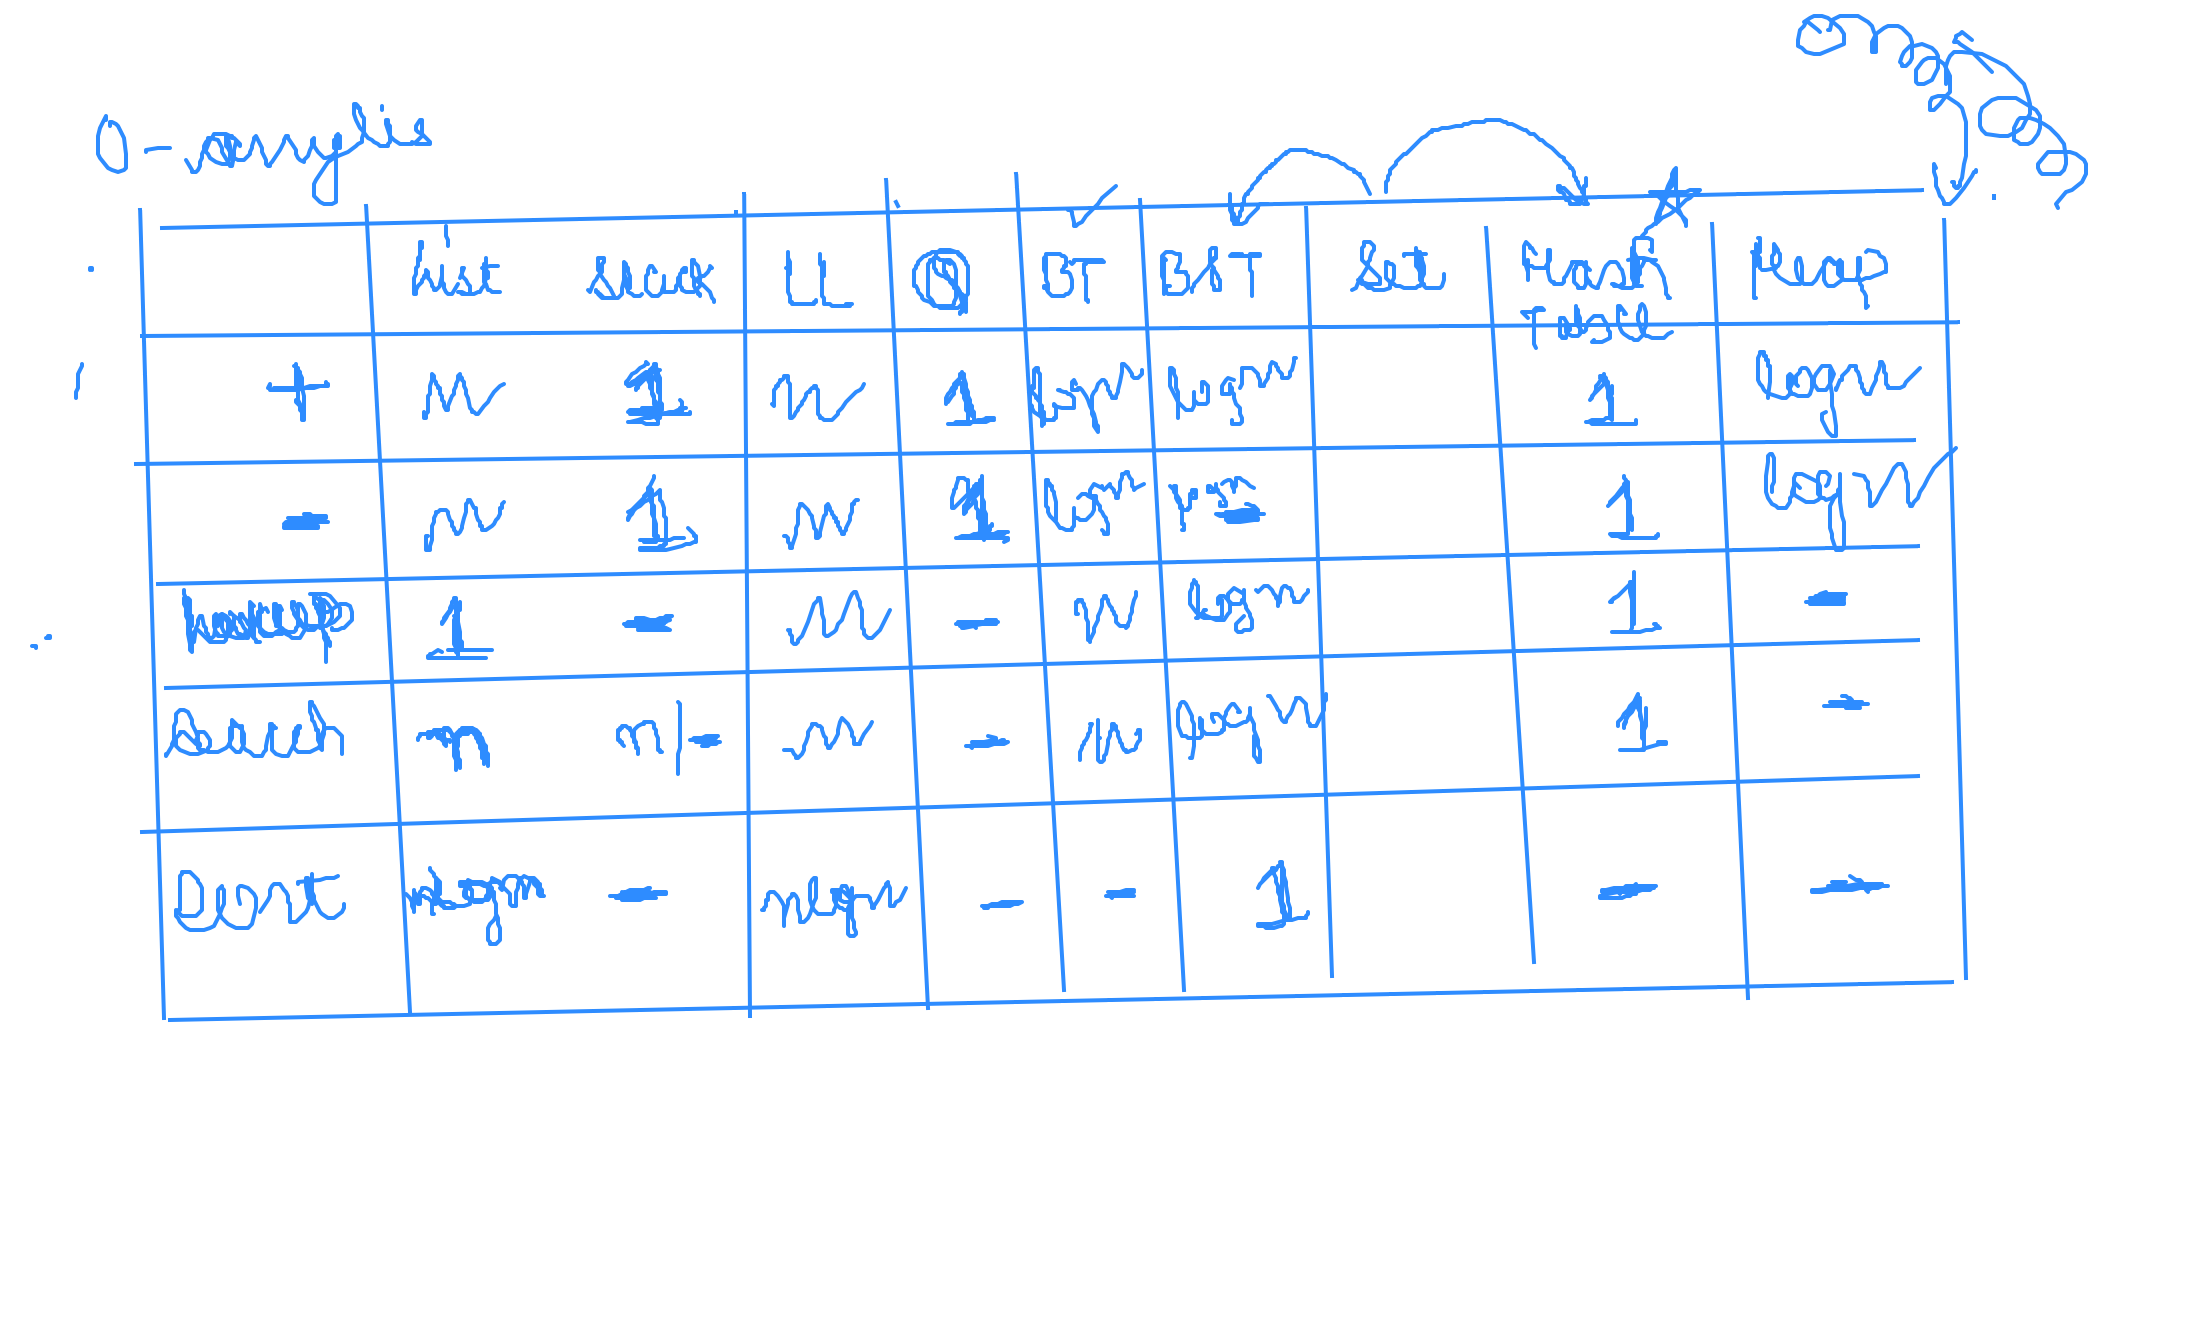 O-anylis
List Stack LL Q BT BST Set Hash Table Heap
+ n 1 n 1 logn logn 1 logn
- n 1 n 1 logn logn 1 logn
lookup 1 - n - n logn 1 -
Search n n|- n - n logn 1 -
Sort nlogn - nlgn - - 1 - -